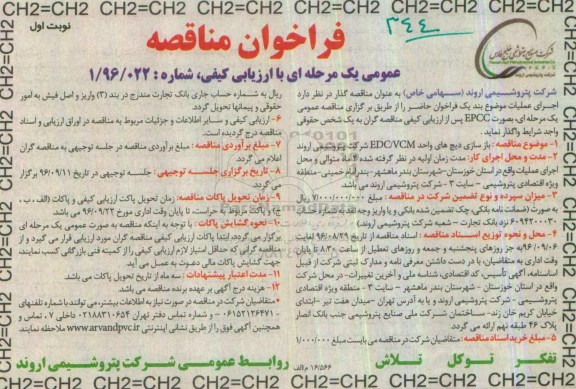 CH2=CH2
نوبت اول
۳۴۴
فراخوان مناقصه
عمومی یک مرحله ای با ارزیابی کیفی، شماره : ۱/۹۶/۰۲۲
شرکت پتروشیمی اروند (سهامی خاص) به عنوان مناقصه گذار در نظر دارد
اجرای عملیات موضوع بند یک فراخوان حاضر را از طریق برگزاری مناقصه عمومی
یک مرحله ای، بصورت EPCC پس از ارزیابی کیفی مناقصه گران به یک شخص حقوقی
واجد شرایط واگذار نماید.
۱- موضوع مناقصه: باز سازی دیچ های واحد EDC/VCM شرکت پتروشیمی اروند
۲- مدت و محل اجرای کار: مدت زمان اولیه در نظر گرفته شده ۴ ماه متوالی و محل
اجرای عملیات واقع در استان خوزستان -شهرستان بندر ماهشهر -بندر امام خمینی - منطقه
ویژه اقتصادی پتروشیمی - سایت ۳ - شرکت پتروشیمی اروند می باشد
۳- میزان سپرده و نوع تضمین شرکت در مناقصه : مبلغ ۷/۰۰۰/۰۰۰/۰۰۰ ریال
به صورت (ضمانت نامه بانکی، چک تضمین شده بانکی و یا واریز وجه نقد به شماره حساب
۶۰۹۴۲۰۰۰۳۰ نزد بانک تجارت - شعبه شرکت پتروشیمی اروند) می باشد.
۴- محل و نحوه توزیع اسناد مناقصه : اسناد مناقصه از تاریخ ۹۶/۰۸/۲۹ لغایت
۹۶/۰۹/۰۶ به جز روزهای پنجشنبه و جمعه و روزهای تعطیل از ساعت ۸:۳۰ تا پایان
وقت اداری به متقاضیان، با در دست داشتن معرفی نامه و مدارک ثبتی شرکت از قبیل
اساسنامه، آگهی تأسیس، کد اقتصادی، شناسه ملی و آخرین تغییرات- در محل شرکت
واقع در استان خوزستان - شهرستان بندر ماهشهر - سایت ۳ - منطقه ویژه اقتصادی
پتروشیمی - شرکت پتروشیمی اروند و یا به آدرس تهران -میدان هفت تیر -ابتدای
خیابان کریم خان زند- ساختمان شرکت ملی صنایع پتروشیمی جنب بانک انصار
پلاک ۴۶ طبقه نهم ارائه می گردد.
۵- مبلغ خرید اسناد مناقصه: متقاضیان شرکت در مناقصه می بایست مبلغ ۱/۰۰۰/۰۰۰
ریال به شماره حساب جاری بانک تجارت مندرج در بند (۳) واریز و اصل فیش به امور
حقوقی و پیمانها تحویل گردد.
۶- ارزیابی کیفی و سایر اطلاعات و جزئیات مربوط به مناقصه در اوراق ارزیابی و اسناد
مناقصه درج گردیده است.
۷- مبلغ برآوردی مناقصه : مبلغ برآوردی مناقصه در جلسه توجیهی به مناقصه گران
اعلام می گردد.
۸- تاریخ برگزاری جلسه توجیهی : جلسه توجیهی در تاریخ ۹۶/۰۹/۱۱ برگزار می
گردد.
۹- زمان تحویل پاکات مناقصه: زمان تحویل پاکت ارزیابی کیفی و پاکات (الف ، ب ،
ج) و پاکت مربوط به حراست، تا پایان وقت اداری مورخ ۹۶/۰۹/۲۲ می باشد.
۱۰- نحوه گشایش پاکات : با توجه به اینکه مناقصه به صورت عمومی یک مرحله ای
برگزار می گردد، ابتدا پاکات ارزیابی کیفی مناقصه گران مورد ارزیابی قرار می گیرد و از
مناقصه گرانی که حداقل امتیاز لازم ارزیابی کیفی را از کمیته فنی بازرگانی کسب نمایند،
جهت گشایش پاکات مالی دعوت به عمل می آید
۱۱- مدت اعتبار پیشنهادات : سه ماه از تاریخ تحویل پاکات می باشد.
۱۲- هزینه درج آگهی بر عهده برنده مناقصه می باشد.
متقاضیان شرکت در مناقصه در صورت نیاز به اطلاعات بیشتر، می توانند با شماره تلفنهای
۰۶۱۵۲۱۲۶۴۷۱ - و شماره تماس دفتر تهران ۰۲۱۸۸۳۱۰۶۵۴ تماس و
همچنین آگهی فوق را از طریق نشانی اینترنتی www.arvandpvc.ir ملاحظه نمایند.
تفکر توکل تلاش
روابط عمومی شرکت پتروشیمی اروند
۱۶/۵۶۶ م الف